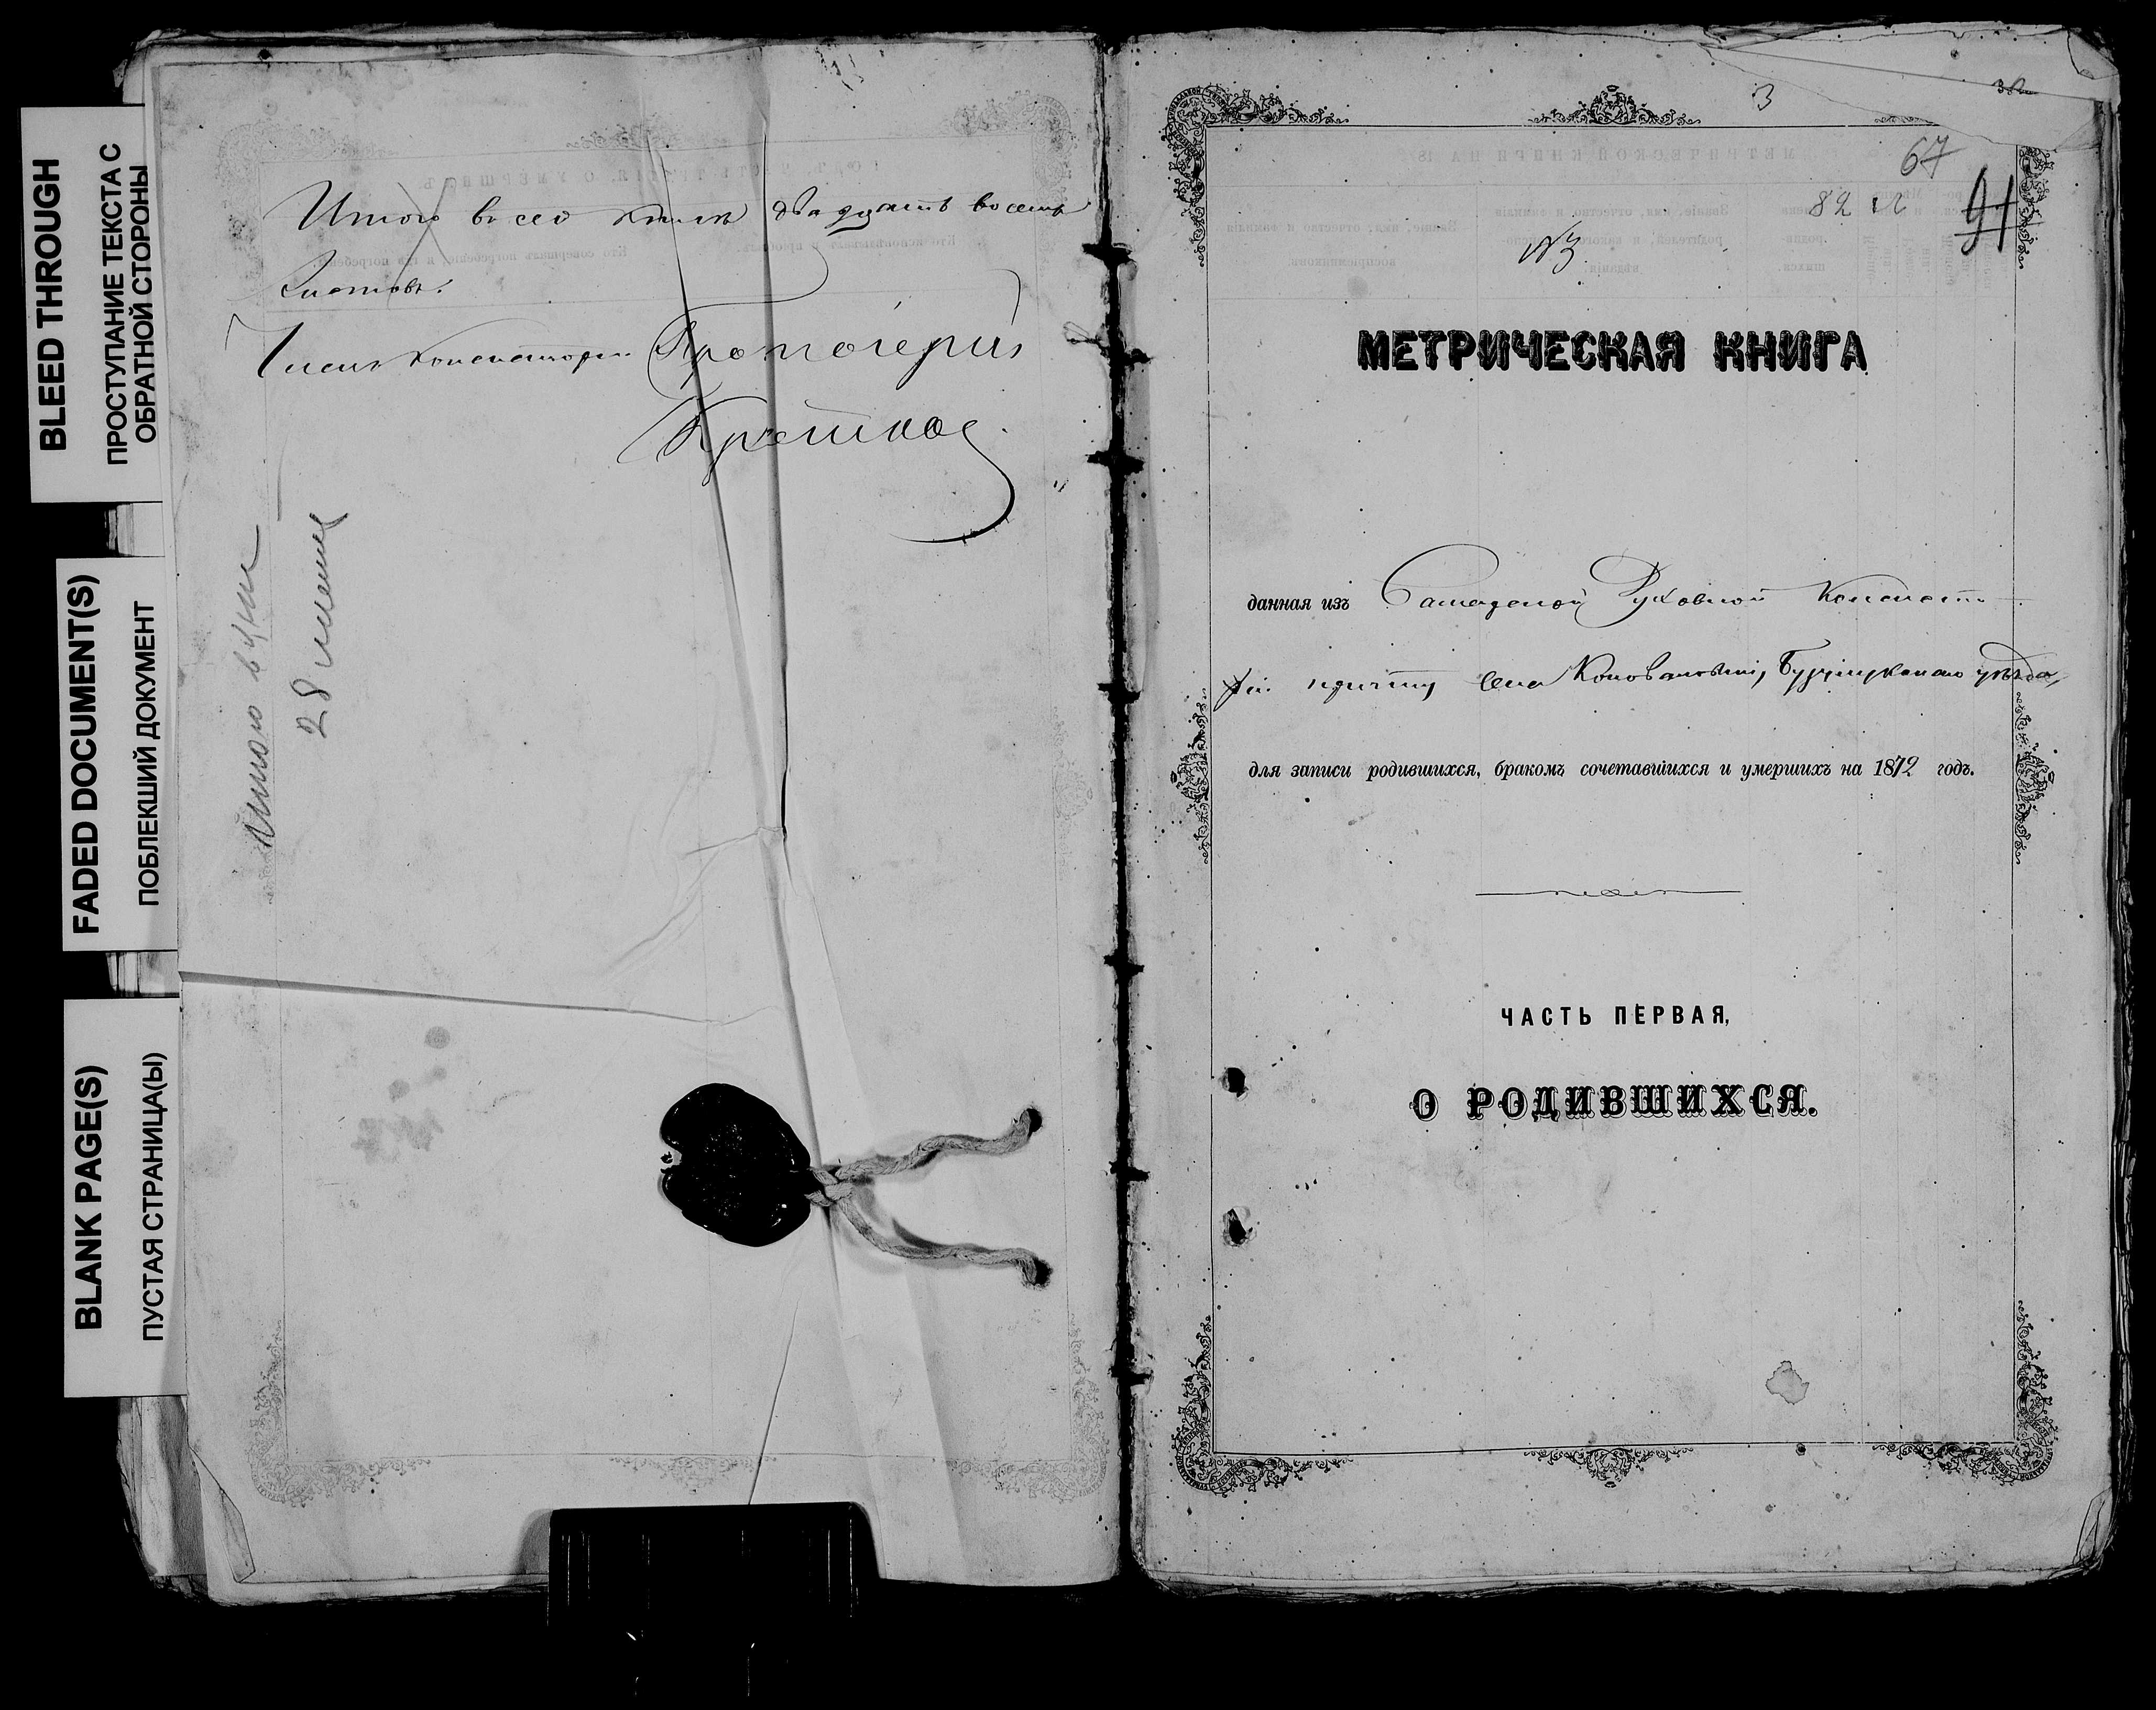 BLEED THROUGH
ПРОСТУПАНИЕ ТЕКСТА С
ОБРАТНОЙ СТОРОНЫ
FADED DOCUMENT(S)
ПОБЛЕКШИЙ ДОКУМЕНТ
BLANK PAGE(S)
ПУСТАЯ СТРАНИЦА(Ы)
Итого въ сей книге двадцать восемь
листовъ.
Членъ Консисторіи Протоіерей
28
3
67
82
91
№3.
МЕТРИЧЕСКАЯ КНИГА
данная изъ Самарской Духовной Консисто-
ріи причту села Коноваловки, Бузулукскаго уѣзда,
для записи родившихся, бракомъ сочетавшихся и умершихъ на 1872 годъ.
ЧАСТЬ ПЕРВАЯ,
О РОДИВШИХСЯ.